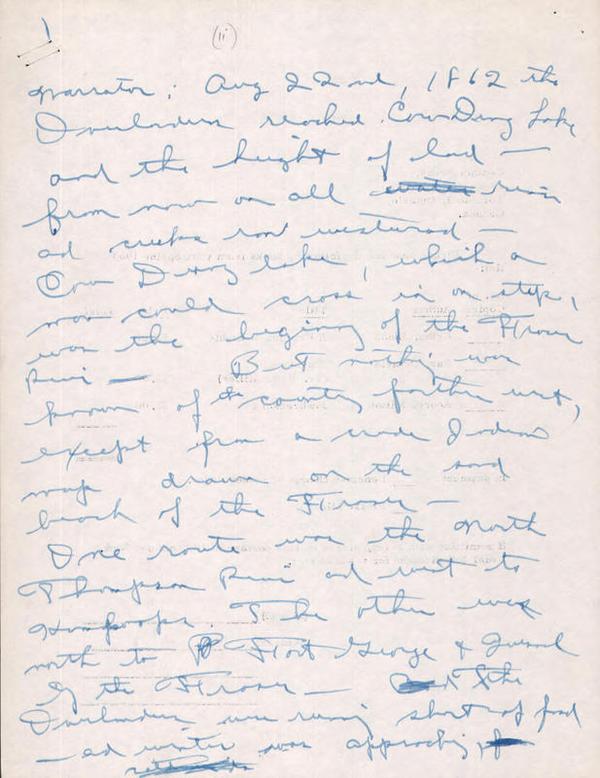 1 (11)
Narrator: Aug 22nd, 1862 the
Overlanders reached Cow Dung Lake
and the height of land —
from now on all rivers
and creeks westward —
Cow Dung lake, which a
man could cross in one step,
was the beginning of the Fraser
River — But nothing was
known of the country farther west,
except from a crude Indian
map drawn on the sand
beach of the Fraser —
One route was the North
Thompson River and went to
Kamloops. The other was
north to Fort George & Quesnel
by the Fraser — the
Overlanders were running short of food
— and winter was approaching,